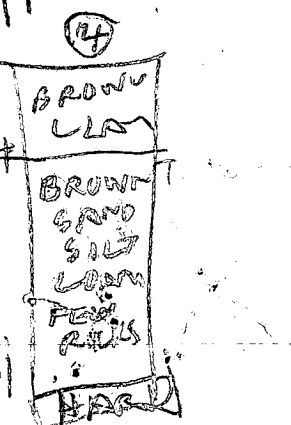 14
BROWN
CLAY
BROWN
SAND
SILT
LOAM
FEW
HARD